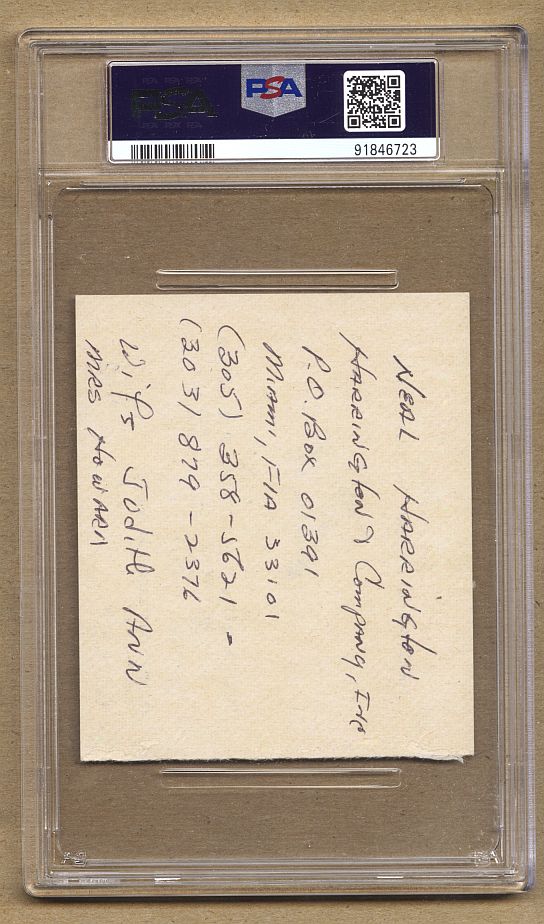 PSA
PSA
91846723
Neal Harrington
Harrington & Company, Inc
P.O. Box 01391
Miami, Fla 33101
(305) 358-5621-
(203) 879-2376
Wife Judith Ann
Mrs Howard